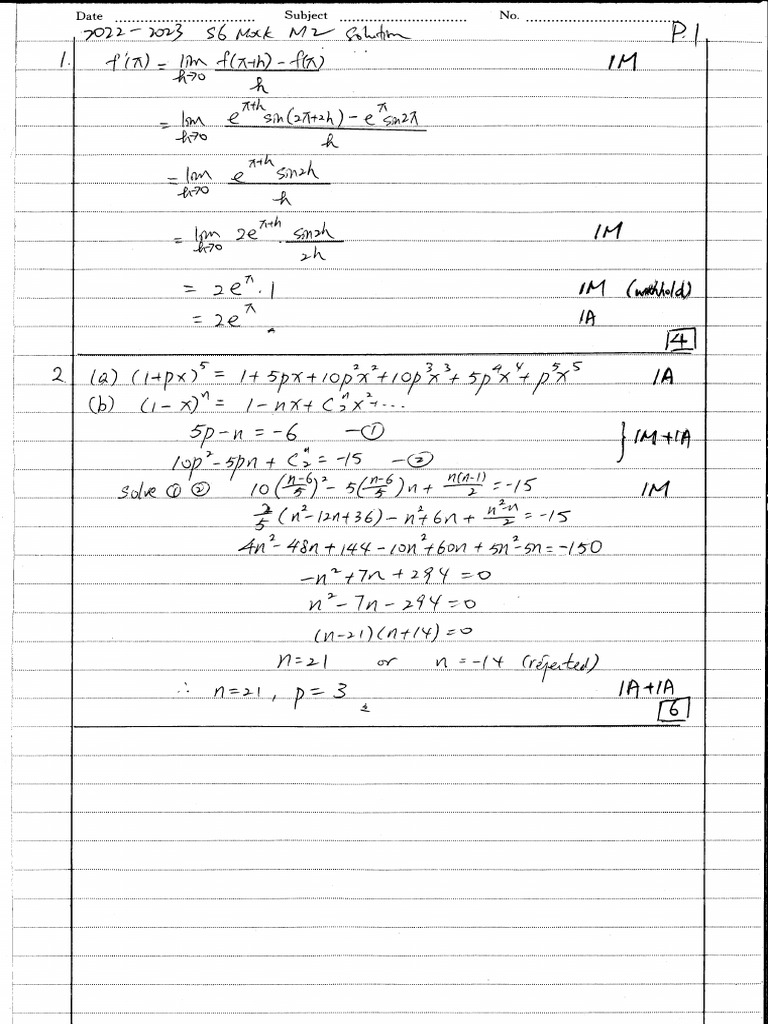 Date Subject No.
2022-2023 S6 Mock M2 Solution P.1
1. f'(π) = lim h→0 (f(π+h) - f(π))/h 1M
= lim h→0 (e^(π+h) sin(2π+2h) - e^π sin2π)/h
= lim h→0 (e^(π+h) sin2h)/h
= lim h→0 2e^(π+h) · sin2h/2h 1M
= 2e^π · 1 1M (withhold)
= 2e^π 1A
4
2 (a) (1+px)^5 = 1+5px+10p^2x^2+10p^3x^3+5p^4x^4+p^5x^5 1A
(b) (1-x)^n = 1-nx+C^n_2x^2+...
5p-n = -6 —① } 1M+1A
10p^2-5pn+C^n_2 = -15 —②
Solve ① ② 10((n-6)/5)^2 - 5((n-6)/5)n + n(n-1)/2 = -15 1M
2/5(n^2-12n+36) - n^2+6n + (n^2-n)/2 = -15
4n^2-48n+144-10n^2+60n+5n^2-5n = -150
-n^2+7n+294 = 0
n^2-7n-294 = 0
(n-21)(n+14) = 0
n=21 or n=-14 (rejected)
∴ n=21, p=3 1A+1A
6